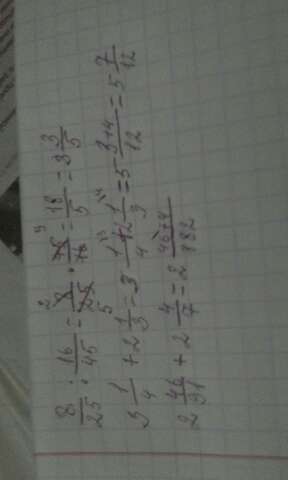 8/25 : 16/45 = 8/25 · 45/16 = 18/5 = 3 3/5
3 1/4 + 2 1/3 = 3 1/4 + 2 1/3 = 5 3+4/12 = 5 7/12
2 46/91 + 2 4/7 = 2